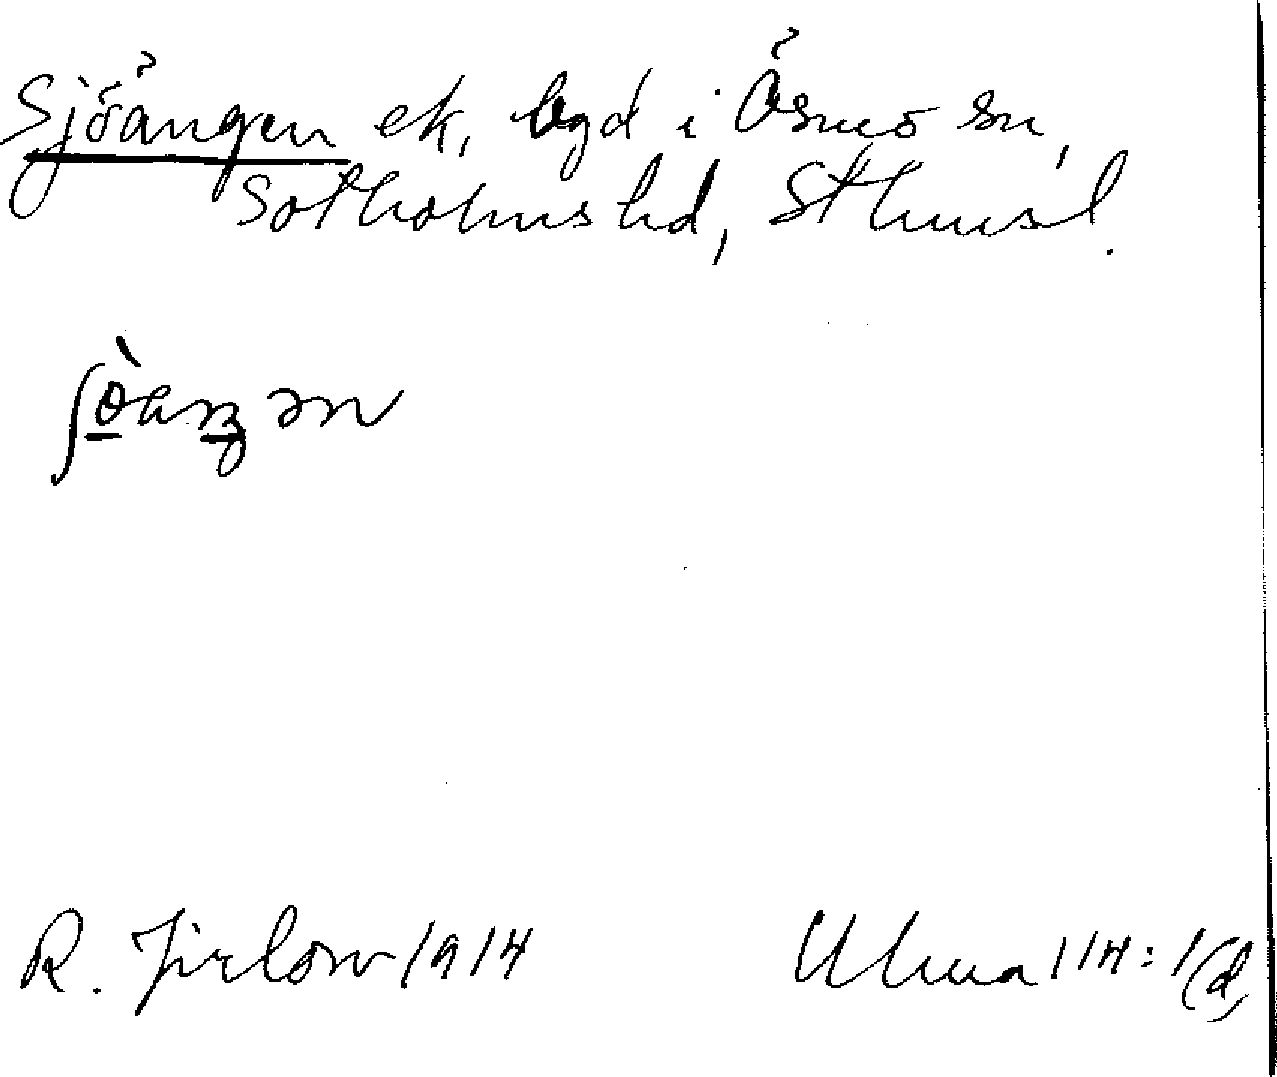 Sjöängen ek, lgd i Ösmo sn,
Sotholms hd, Sthms l.
R. Jirlow 1914
Ulma 114:1(d)